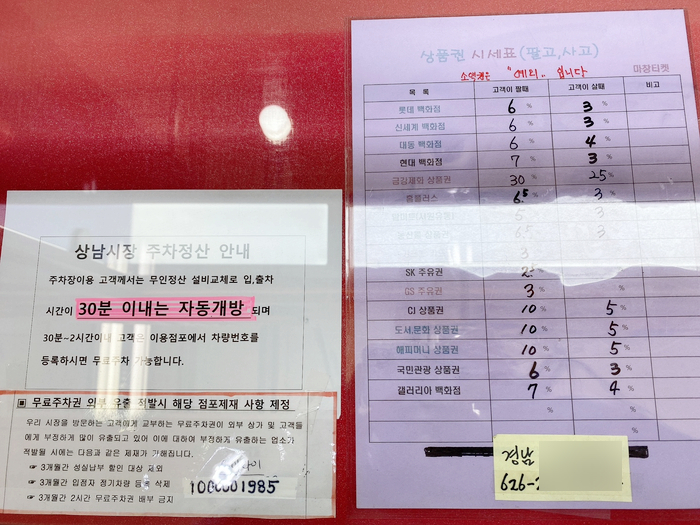 상남시장 주차정산 안내
주차장이용 고객께서는 무인정산 설비교체로 입,출차
시간이 30분 이내는 자동개방 되며
30분~2시간이내 고객은 이용점포에서 차량번호를
등록하시면 무료주차 가능합니다.
▣ 무료주차권 외부 유출 적발시 해당 점포제재 사항 제정
우리 시장을 방문하는 고객에게 교부하는 무료주차권이 외부 상가 및 고객들
에게 부정하게 많이 유출되고 있어 이에 대하여 부정하게 유출하는 업소가
적발될 시에는 다음과 같은 제재가 가해집니다.
☞ 3개월간 성실납부 할인 대상 제외
☞ 3개월간 입점자 정기차량 등록 삭제
☞ 3개월간 2시간 무료주차권 배부 금지
1000001985
상품권 시세표(팔고,사고)
소액권은 "예외" 입니다
마창티켓
목 록 고객이 팔때 고객이 살때 비고
롯데 백화점 6 % 3 %
신세계 백화점 6 % 3 %
대동 백화점 6 % 4 %
현대 백화점 7 % 3 %
금강제화 상품권 30 % 25 %
홈플러스 6.5 % 3 %
5 % 3 %
65 % 3 %
3 %
SK 주유권 2.5 %
GS 주유권 3 % %
CJ 상품권 10 % 5 %
도서,문화 상품권 10 % 5 %
해피머니 상품권 10 % 5 %
국민관광 상품권 6 % 3 %
갤러리아 백화점 7 % 4 %
% %
% %
경남
626-2